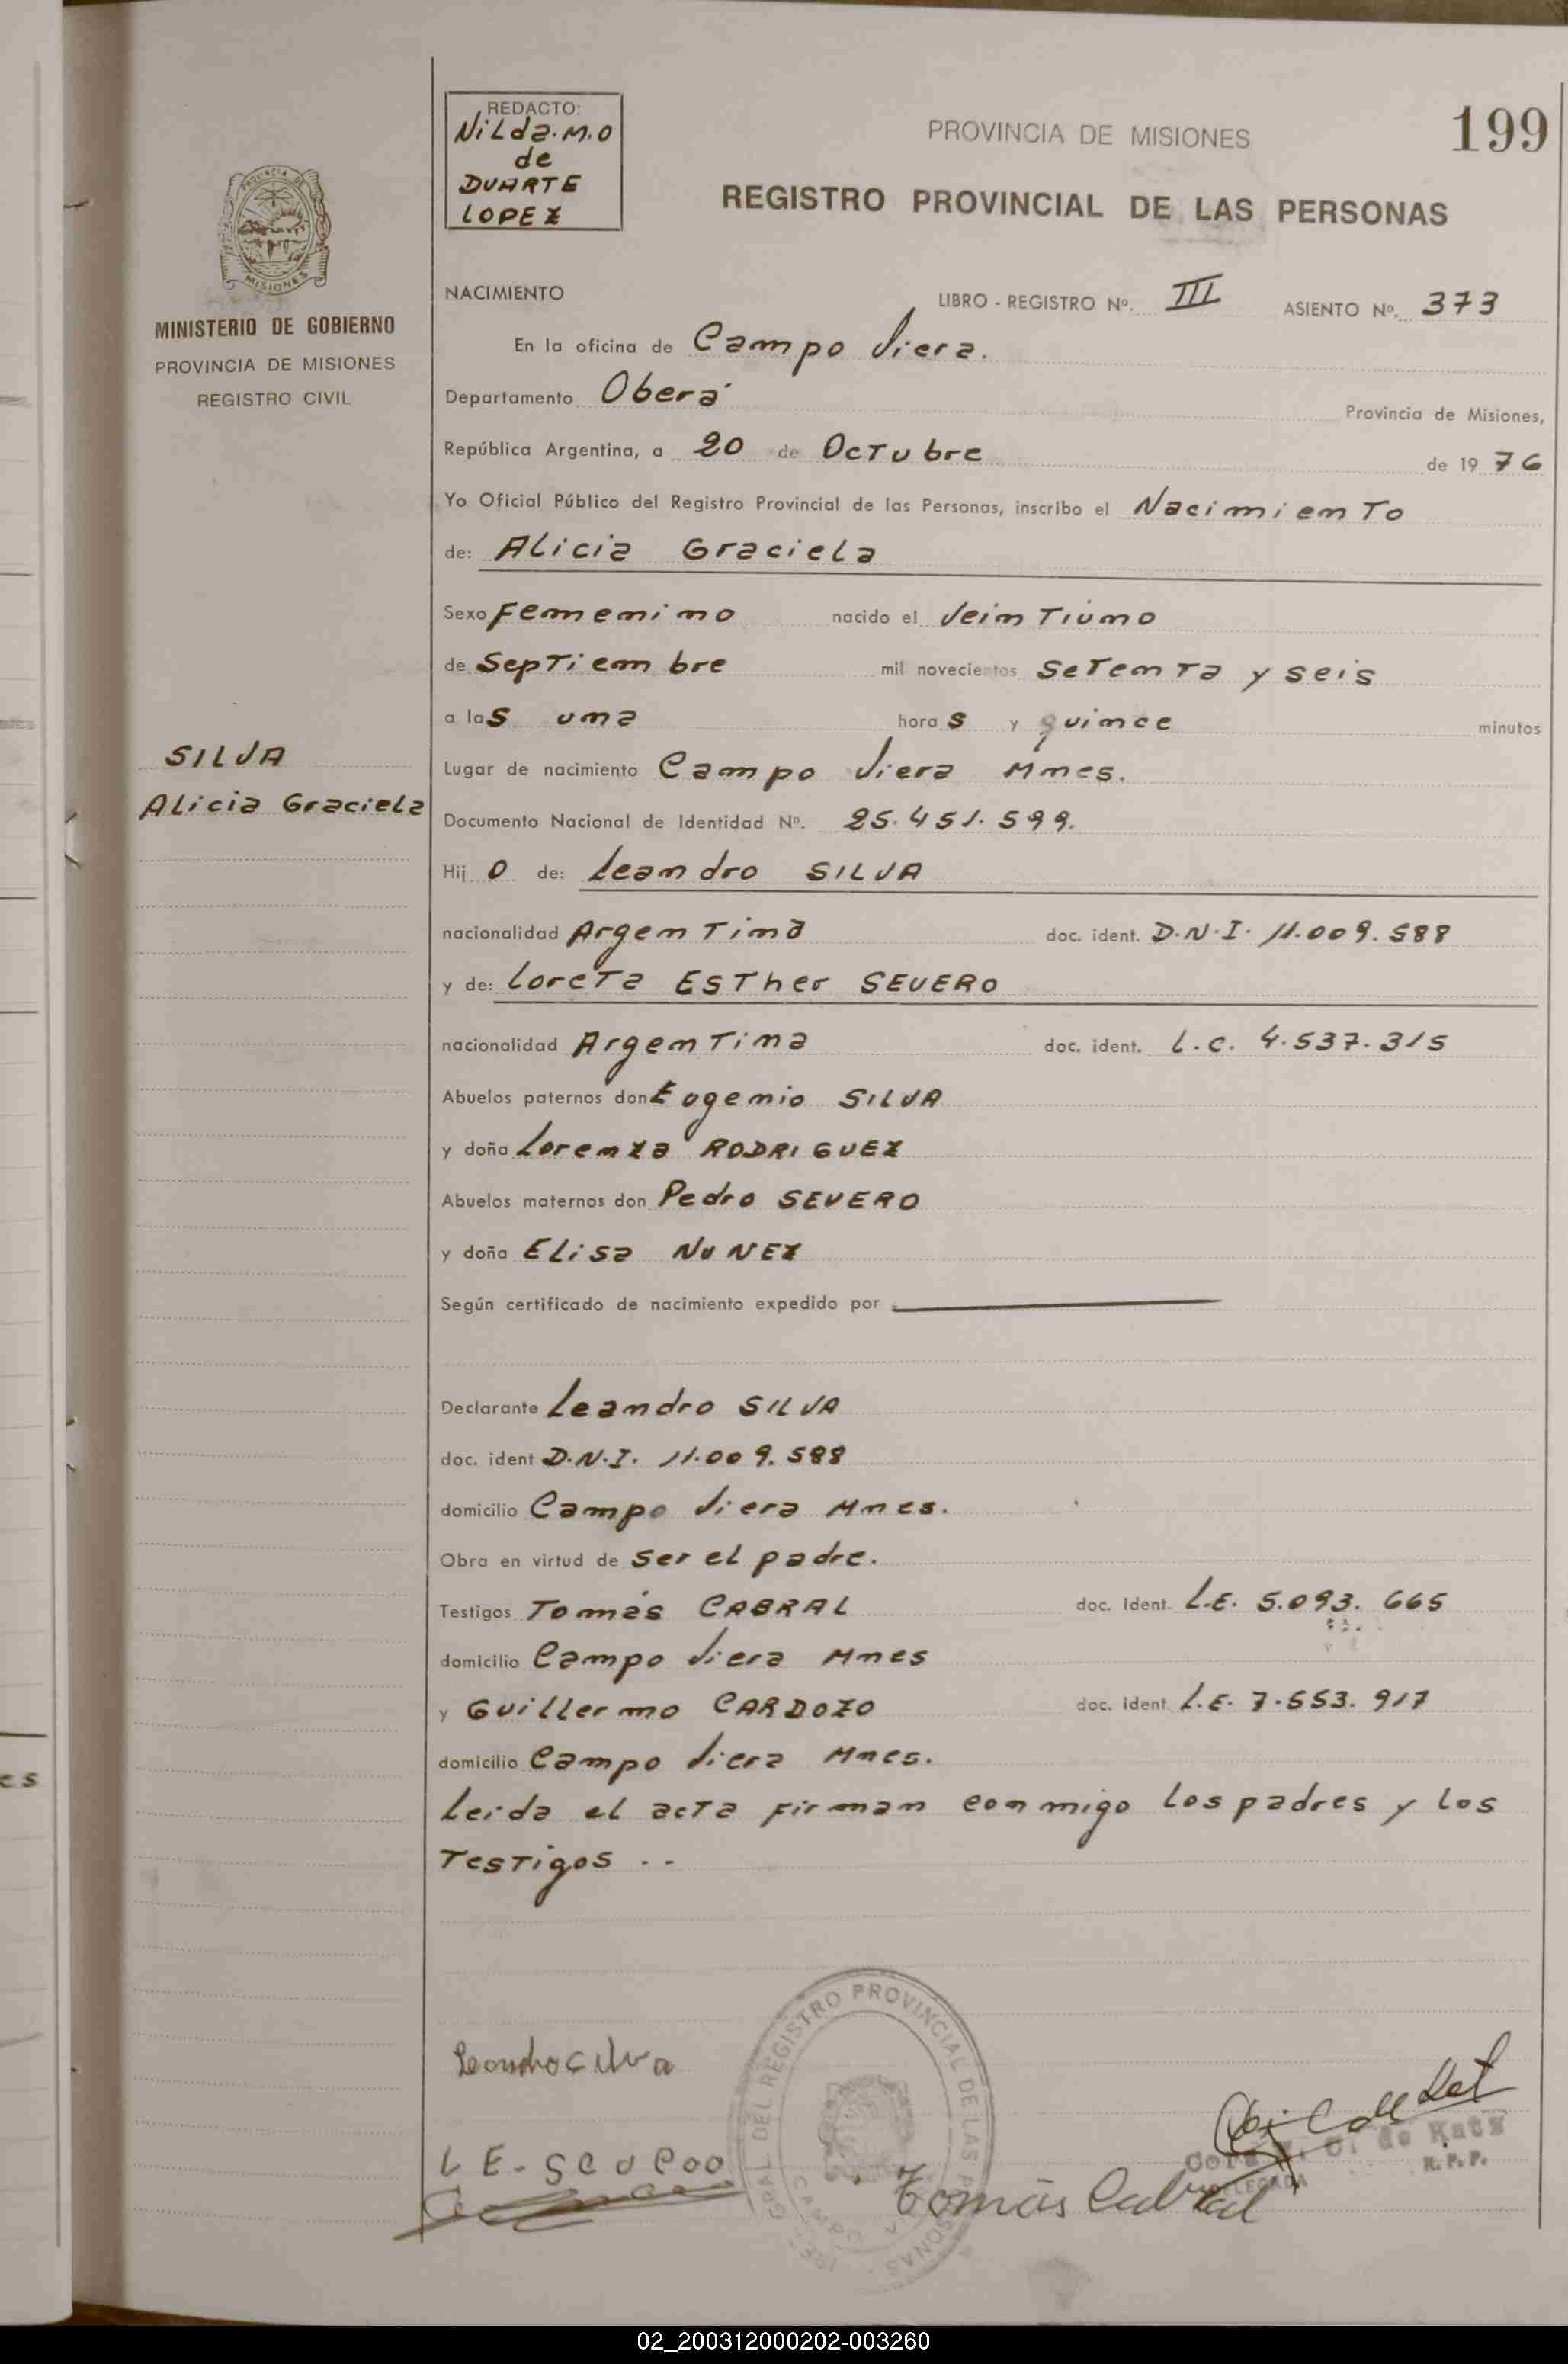 REDACTO:
Nilda.M.O
de
DUARTE
LOPEZ
PROVINCIA DE MISIONES
199
REGISTRO PROVINCIAL DE LAS PERSONAS
PROVINCIA DE
MISIONES
MINISTERIO DE GOBIERNO
PROVINCIA DE MISIONES
REGISTRO CIVIL
NACIMIENTO
LIBRO - REGISTRO Nº. III ASIENTO Nº. 373
En la oficina de Campo Viera.
Departamento Oberá Provincia de Misiones,
República Argentina, a 20 de Octubre de 19 76
Yo Oficial Público del Registro Provincial de las Personas, inscribo el Nacimiento
de: Alicia Graciela
Sexo Femenino nacido el Veintiuno
de Septiembre mil novecientos Setenta y seis
a las una horas y quince minutos
SILVA
Alicia Graciela
Lugar de nacimiento Campo Viera Mnes.
Documento Nacional de Identidad Nº. 25.451.599.
Hij o de: Leandro SILVA
nacionalidad Argentina doc. ident. D.N.I. 11.009.588
y de: Loreta Esther SEVERO
nacionalidad Argentina doc. ident. L.C. 4.537.315
Abuelos paternos don Eugenio SILVA
y doña Lorenza RODRIGUEZ
Abuelos maternos don Pedro SEVERO
y doña Elisa NUNEZ
Según certificado de nacimiento expedido por
Declarante Leandro SILVA
doc. ident D.N.I. 11.009.588
domicilio Campo Viera Mnes.
Obra en virtud de ser el padre.
Testigos Tomás CABRAL doc. Ident. L.E. 5.093.665
domicilio Campo Viera Mnes
y Guillermo CARDOZO doc. ident. L.E. 7.553.917
domicilio Campo Viera Mnes.
Leida el acta firman conmigo los padres y los
Testigos . -
es
DEL REGISTRO PROVINCIAL DE LAS PERSONAS
CAMPO
de Kats
R. P. P.
Tomás Cabral
02_200312000202-003260